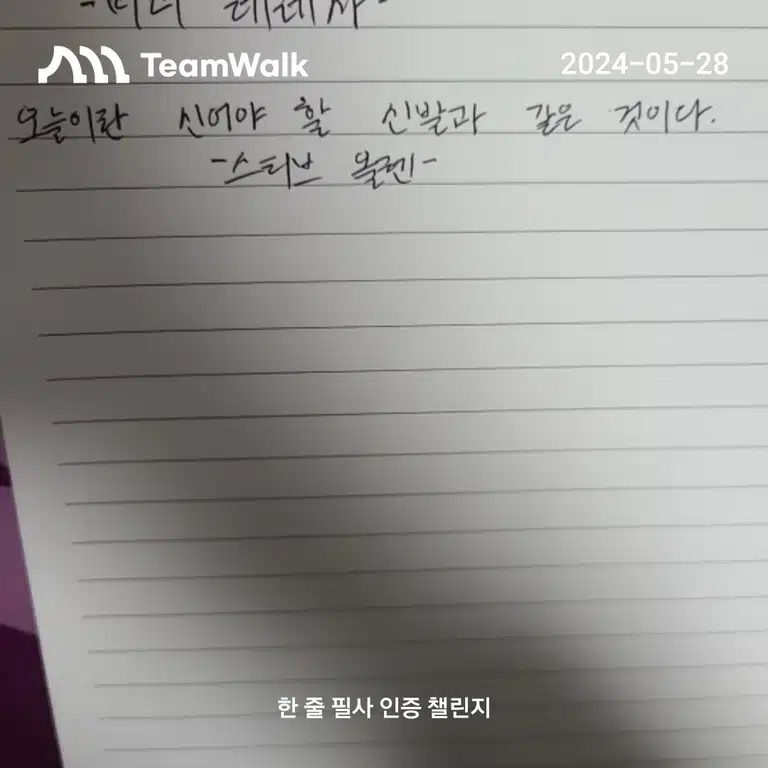 테레사-
TeamWalk
2024-05-28
오늘이란 신어야 할 신발과 같은 것이다.
-스티브 올렌-
한 줄 필사 인증 챌린지